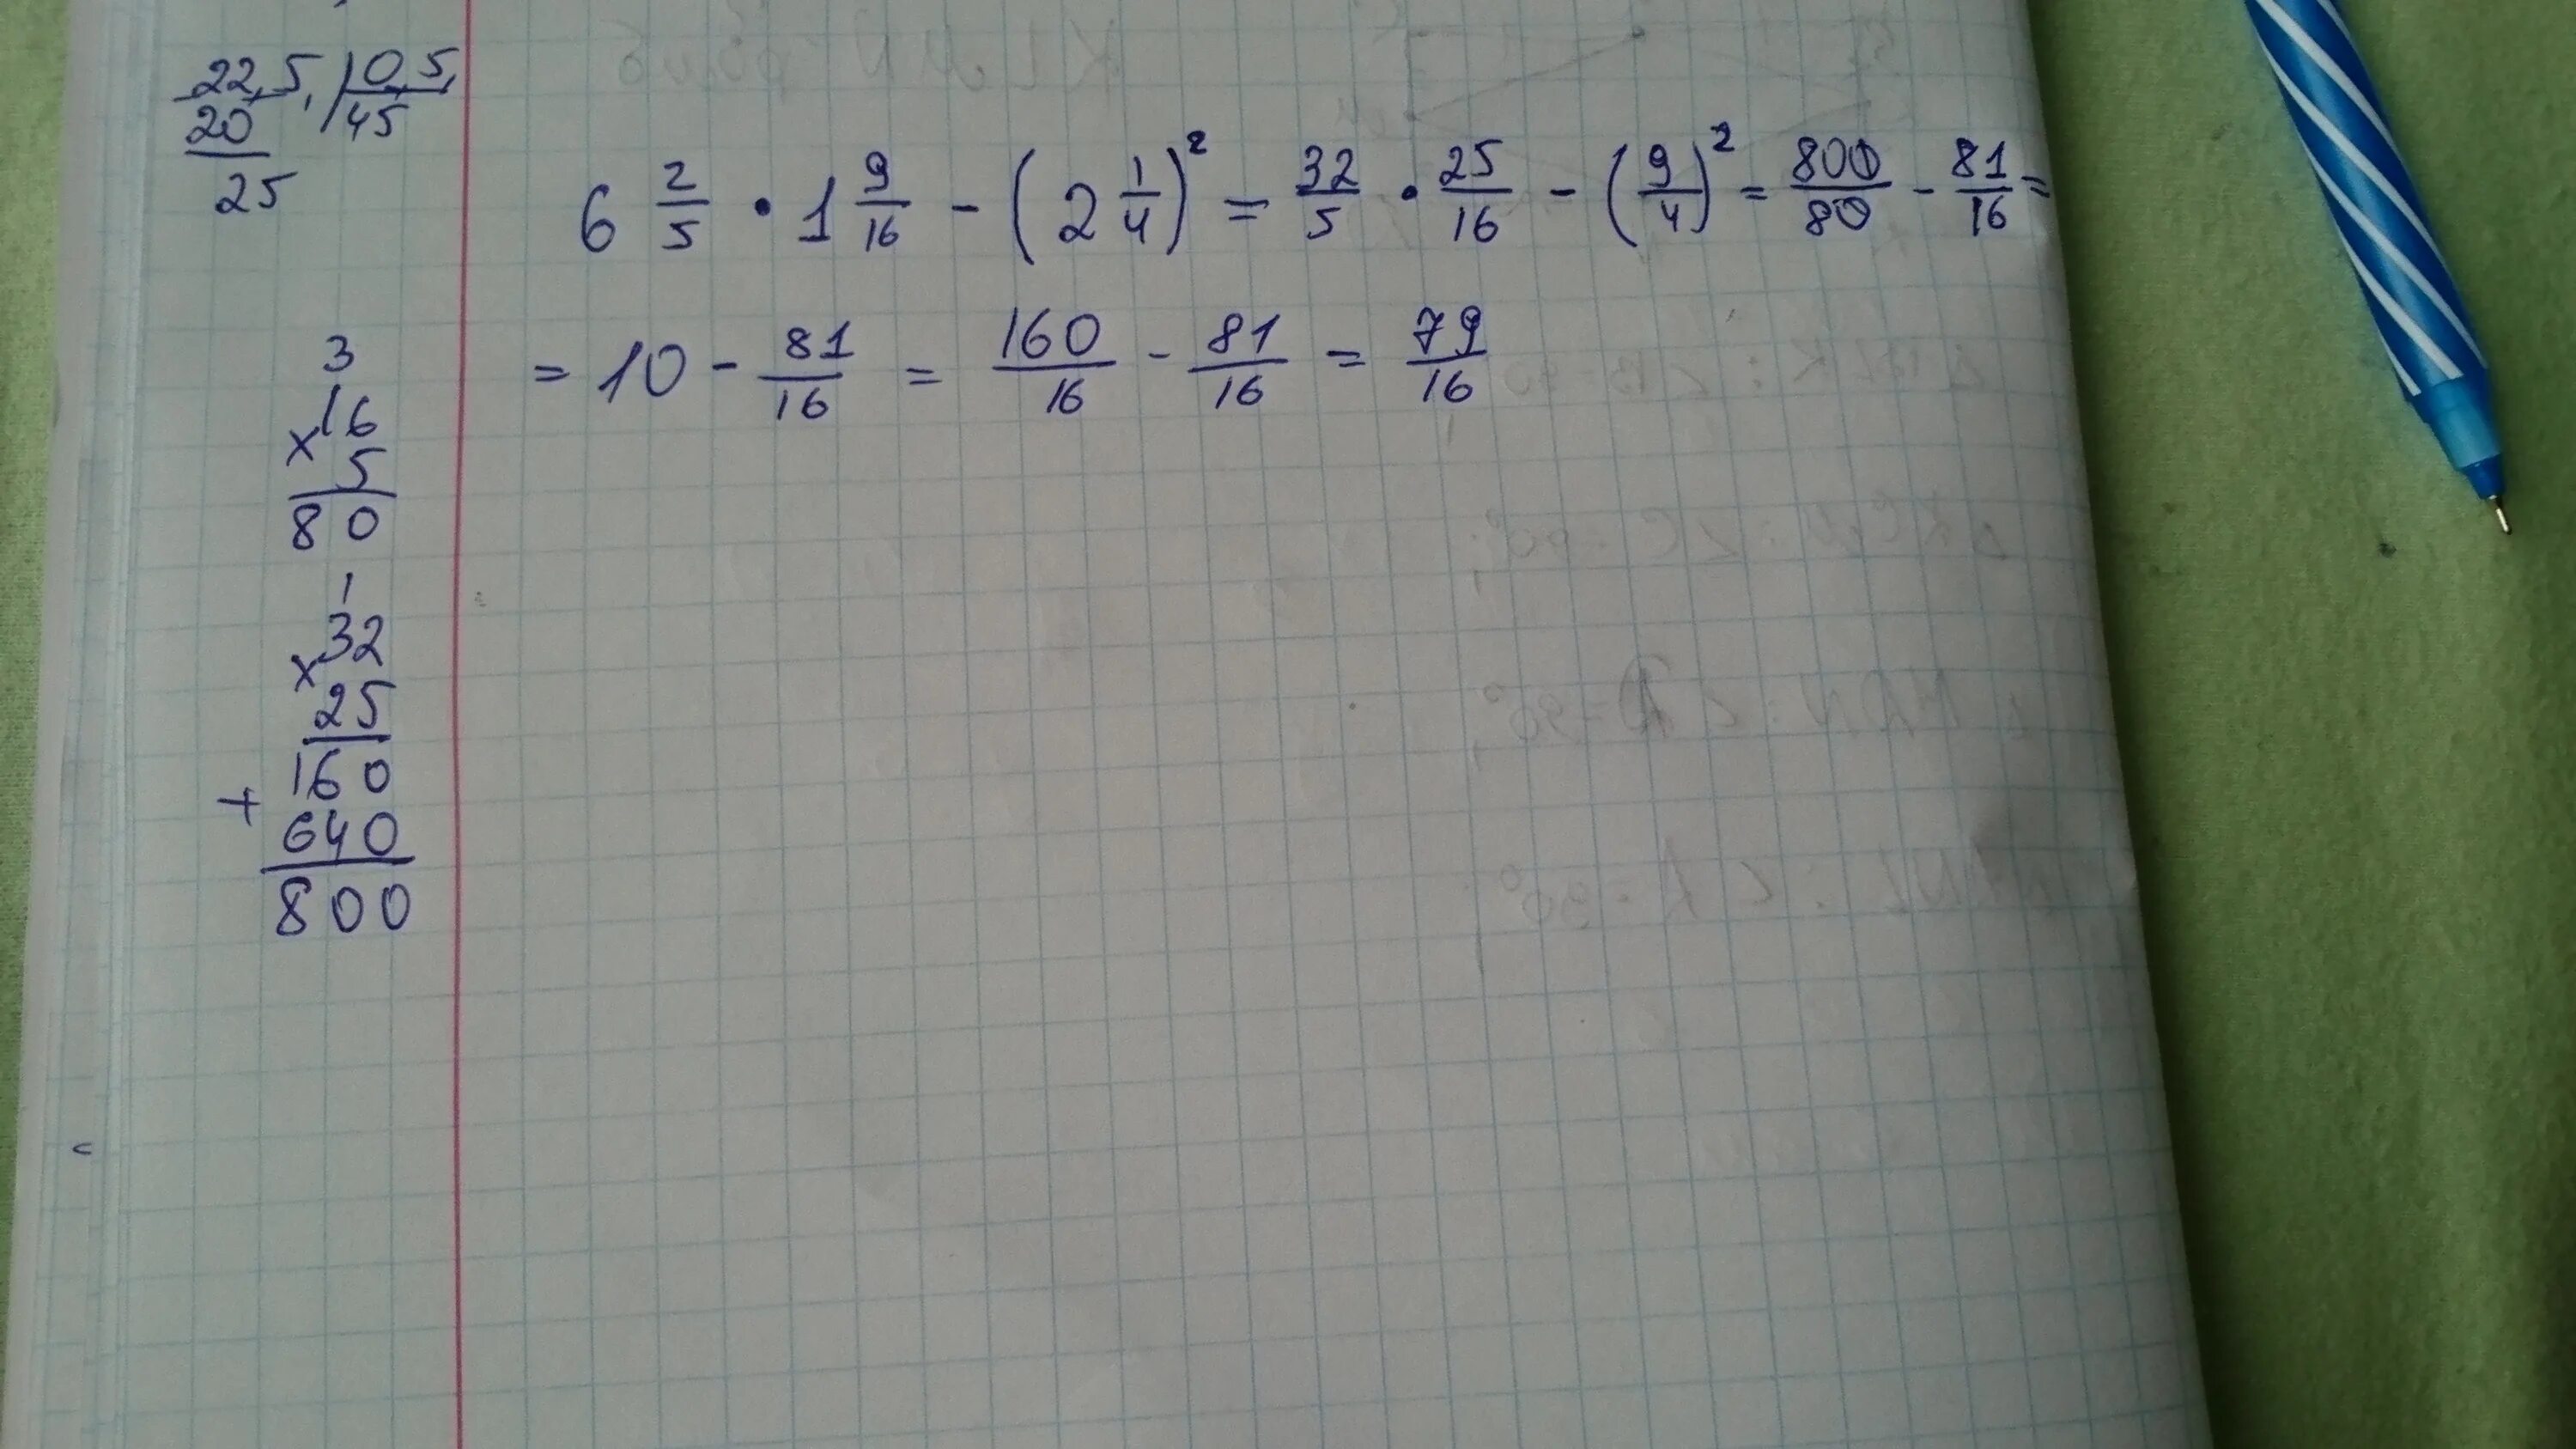 22,5, | 0,5,
20 | 45
25
6 2/5 · 1 9/16 - (2 1/4)² = 32/5 · 25/16 - (9/4)² = 800/80 - 81/16 =
= 10 - 81/16 = 160/16 - 81/16 = 79/16
3
×16
5
80
1
×32
25
160
+
640
800